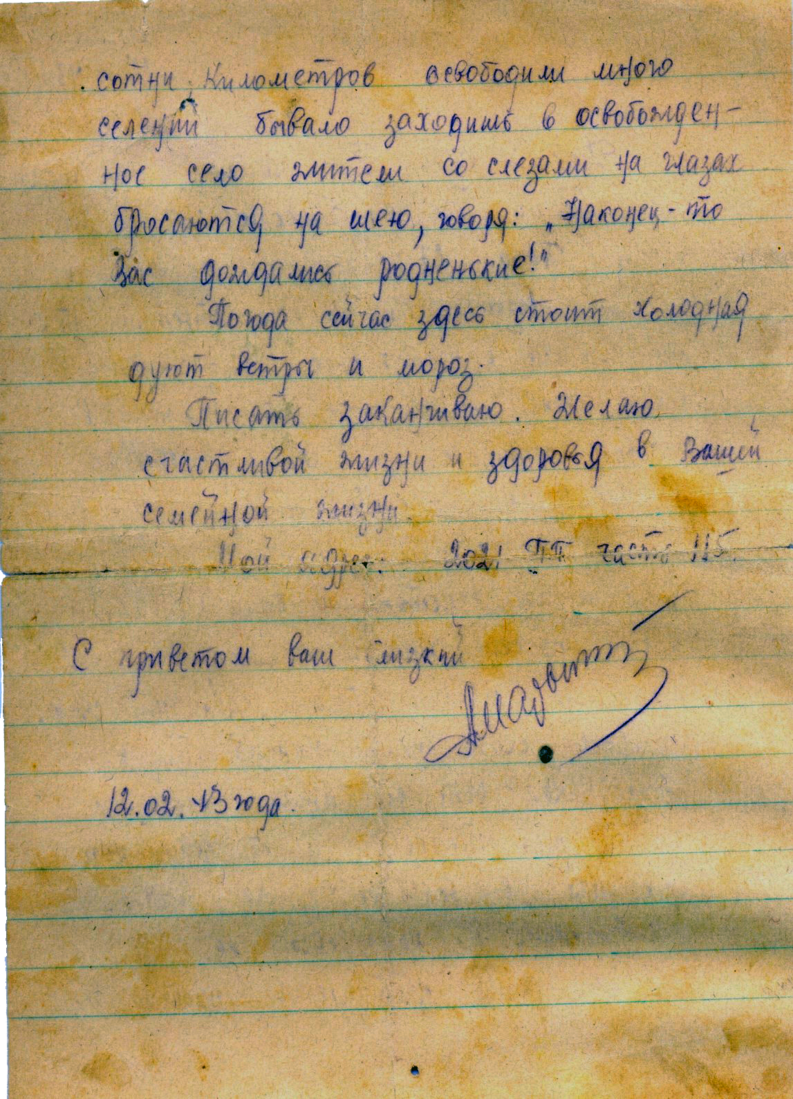 сотни километров освободили много
селений бывало заходишь в освобожден-
ное село жители со слезами на глазах
бросаются на шею, говоря: „Наконец-то
Вас дождались родненькие!"
Погода сейчас здесь стоит холодная
дуют ветры и мороз.
Писать заканчиваю. Желаю
счастливой жизни и здоровья в Вашей
семейной жизни.
Мой адрес: 2021 ПП часть 115.
С приветом ваш близкий
12.02.43 года.